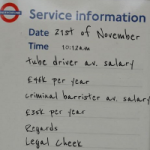 Service Information
Date 21st of November
Time 10:12am
tube driver av. salary
£49k per year
criminal barrister av. salary
£25k per year
Regards
Legal Cheek